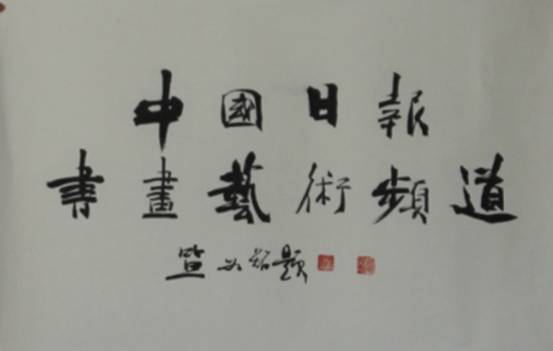 中國日報
書畫藝術頻道
題